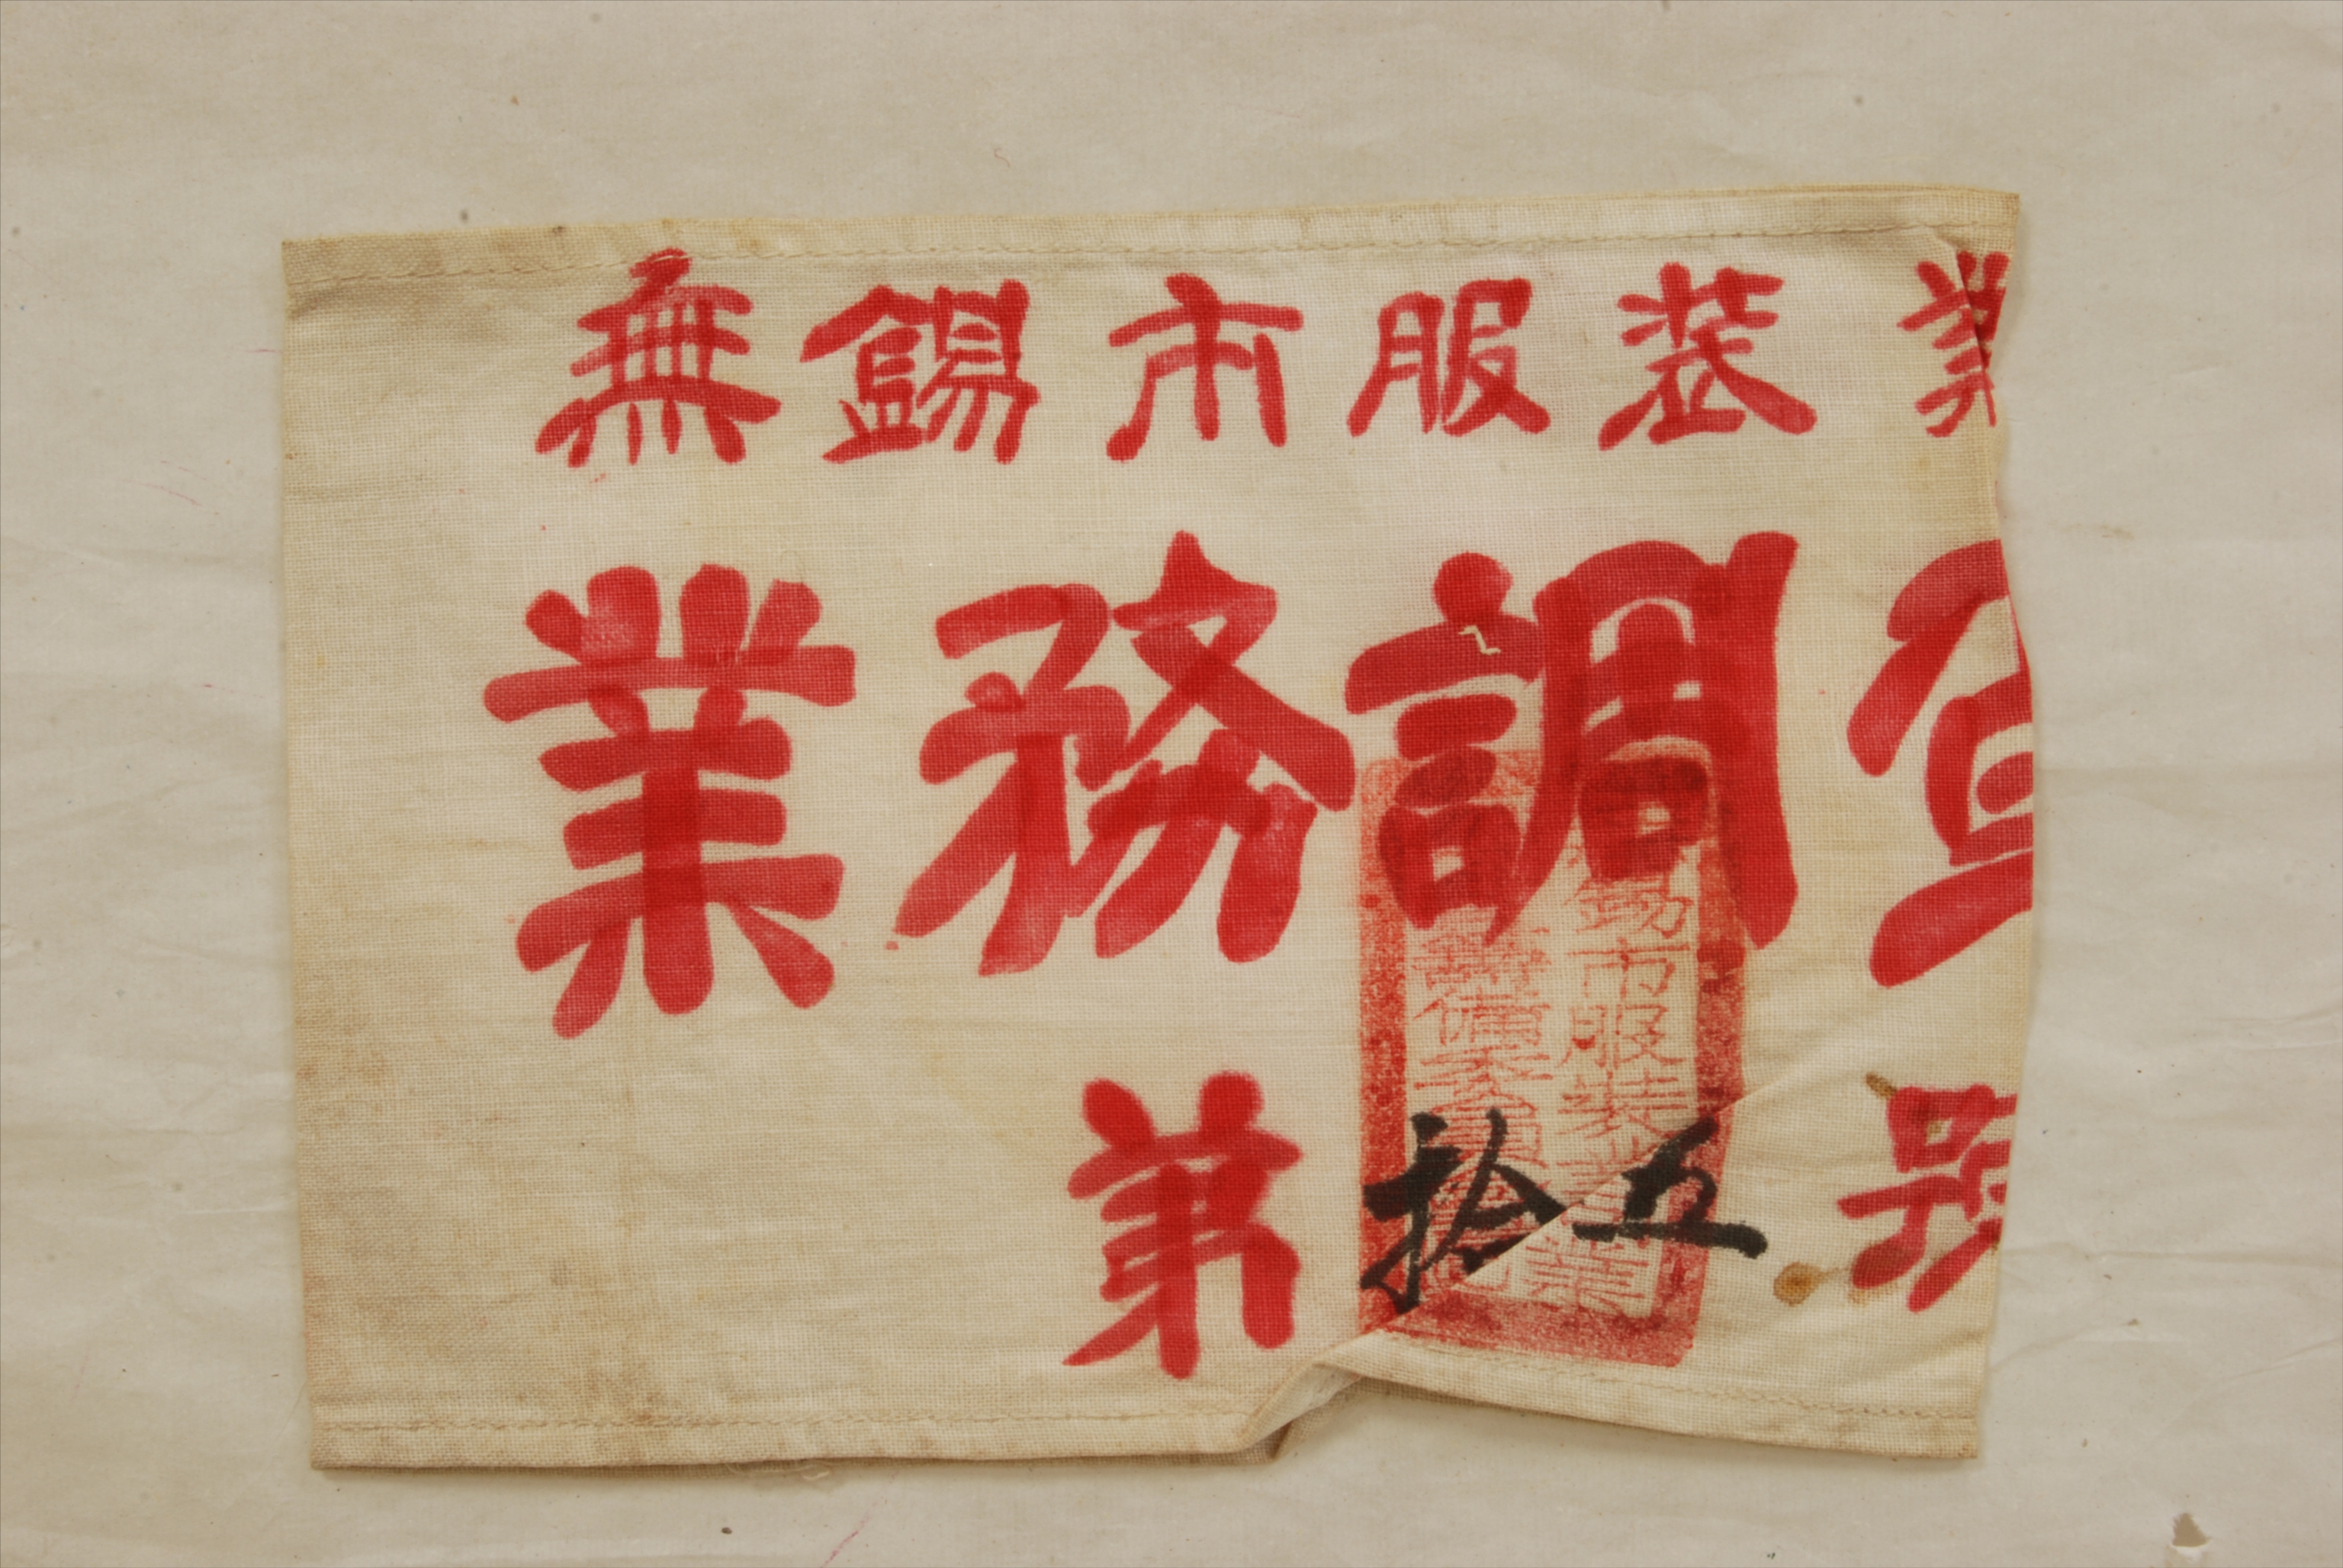 無錫市服装業
業務調查
第拾五号
市服装業
備委員會